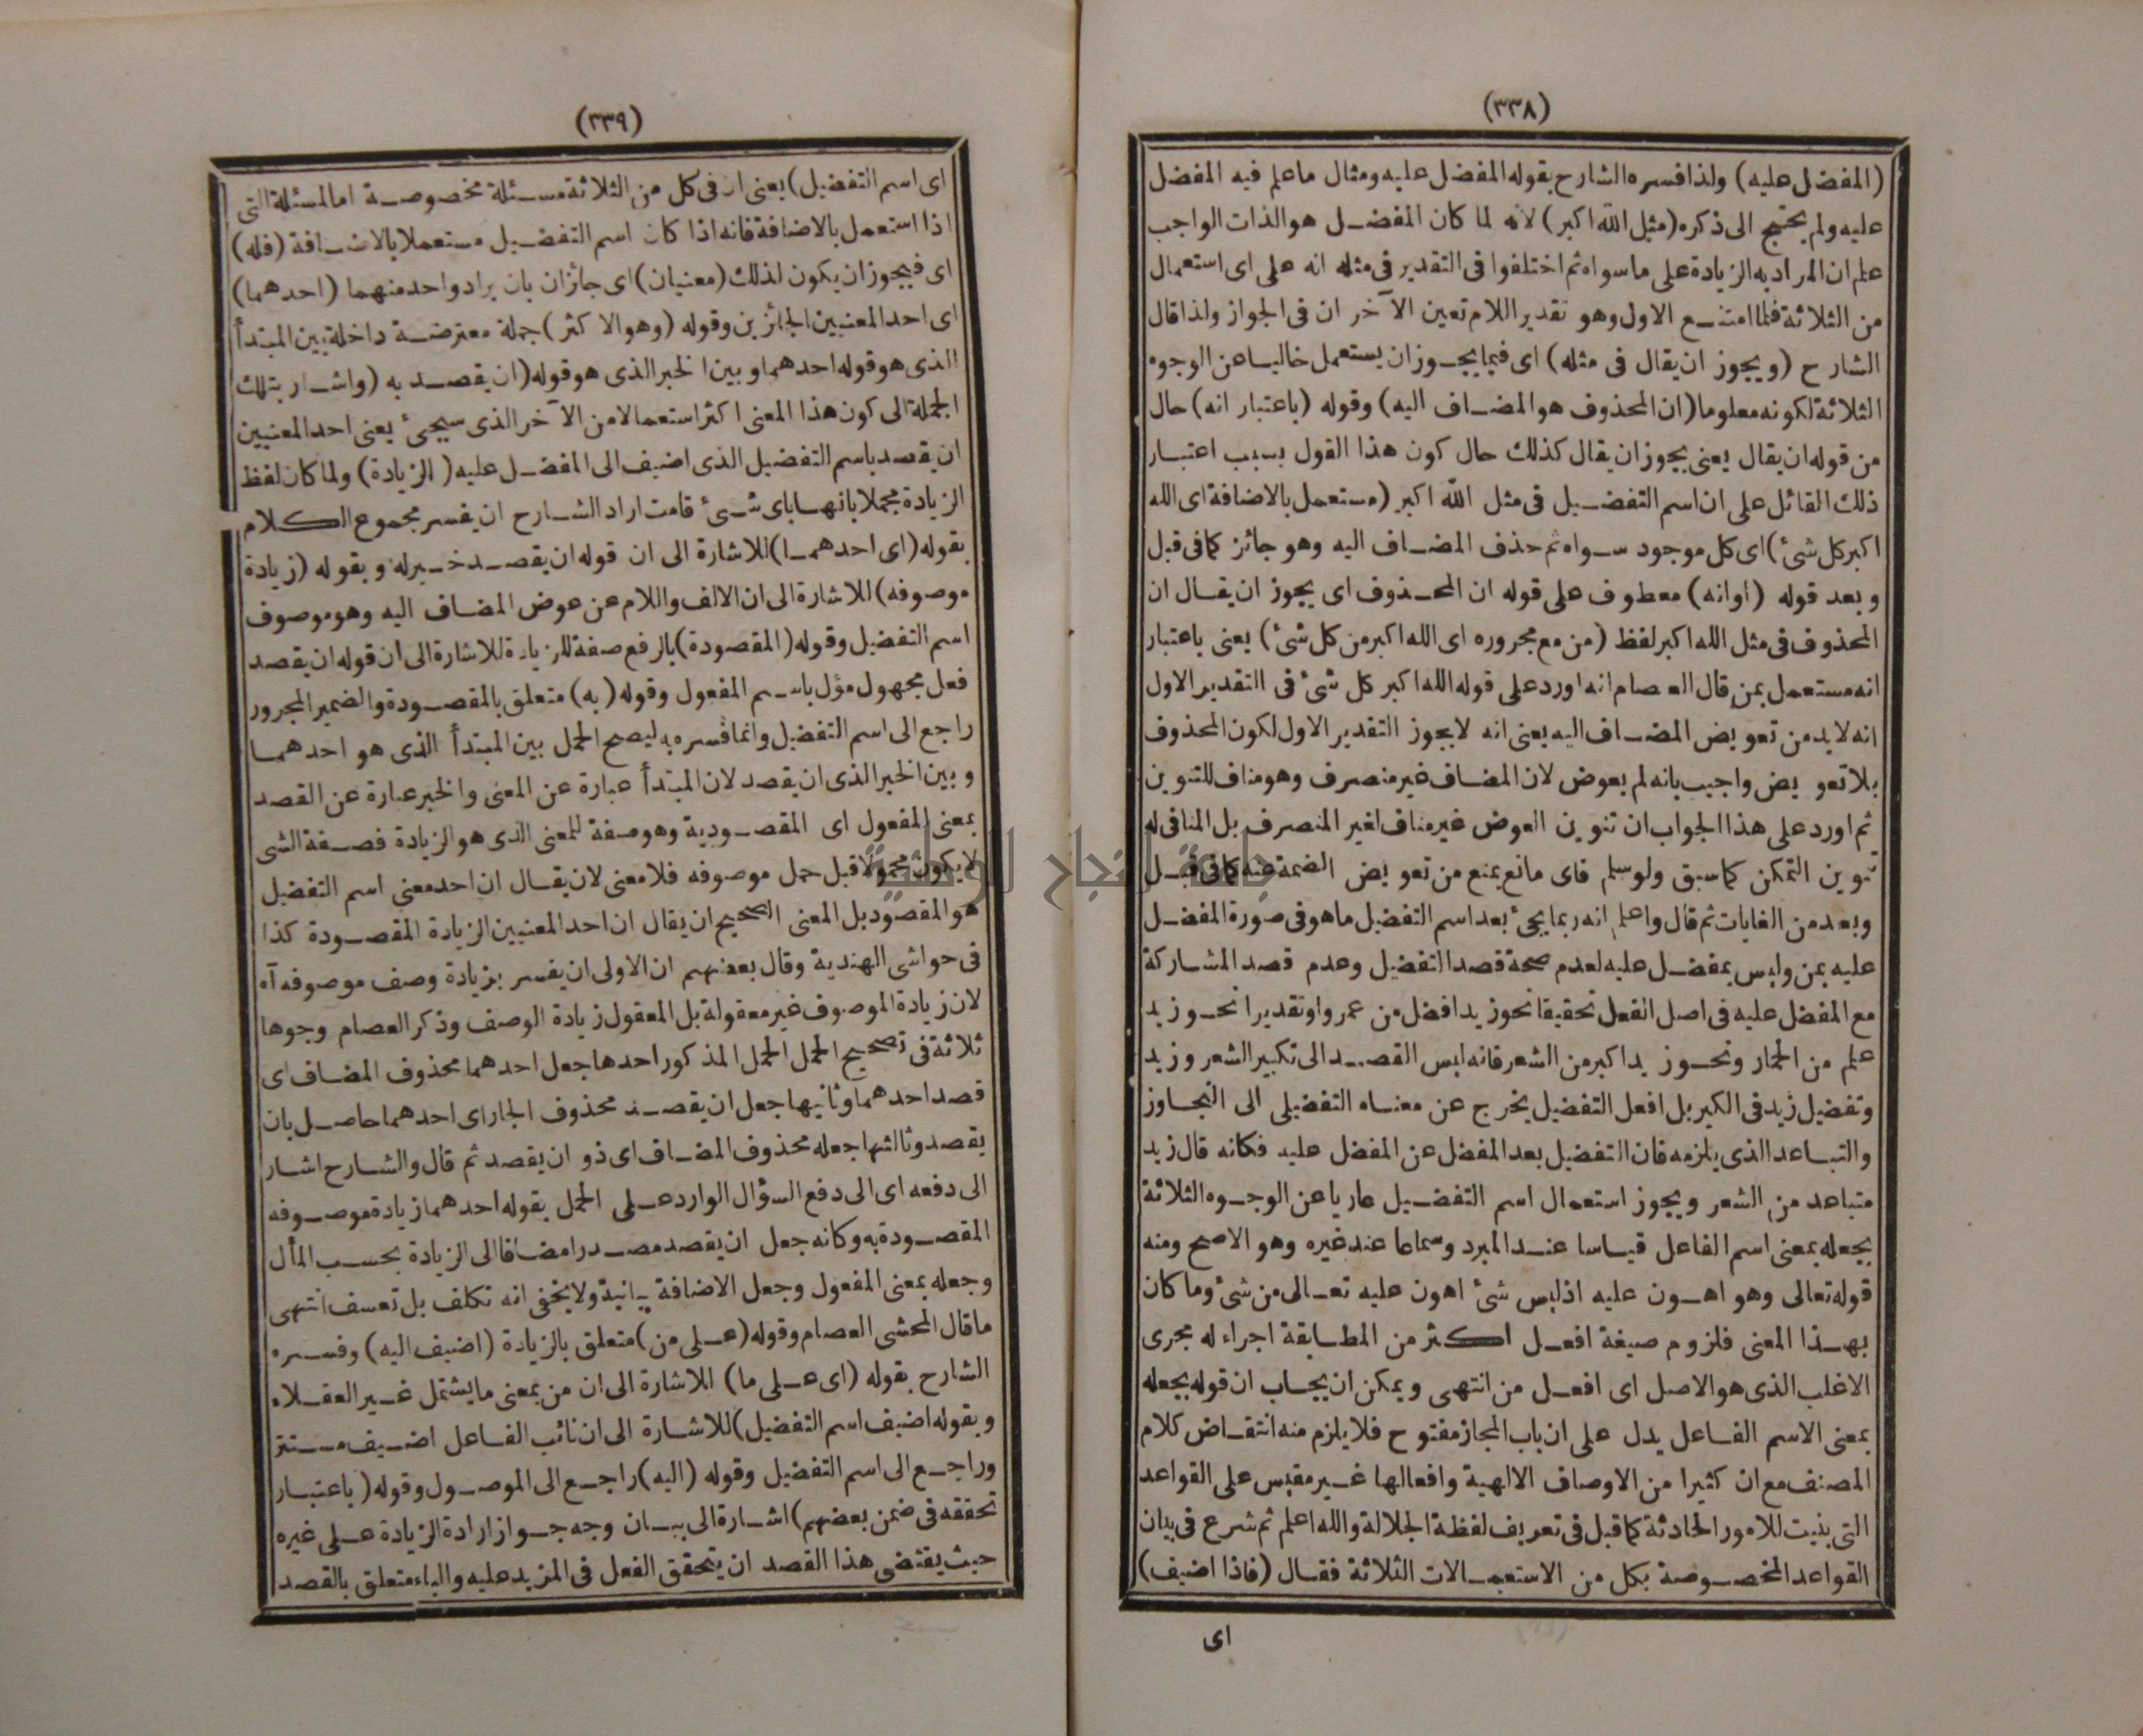 (٣٣٨)
(المفضل عليه) ولذا فسره الشارح بقوله المفضل عليه ومثال ما علم فيه المفضل
عليه ولم يحتج الى ذكره (مثل الله اكبر) لانه لما كان المفضل هو الذات الواجب
علم ان المراد به الزيادة على ما سواه ثم اختلفوا فى التقدير فى مثله انه على اى استعمال
من الثلاثة فلما امتنع الاول وهو تقدير اللام تعين الآخر ان فى الجواز ولذا قال
الشارح (ويجوز ان يقال فى مثله) اى فيما يجوز ان يستعمل خاليا عن الوجوه
الثلاثة لكونه معلوما (ان المحذوف هو المضاف اليه) وقوله (باعتبار انه) حال
من قوله ان يقال يعنى يجوز ان يقال كذلك حال كون هذا القول بسبب اعتبار
ذلك القائل على ان اسم التفضيل فى مثل الله اكبر (مستعمل بالاضافة اى الله
اكبر كل شئ) اى كل موجود سواه ثم حذف المضاف اليه وهو جائز كما فى قبل
وبعد قوله (او انه) معطوف على قوله ان المحذوف اى يجوز ان يقال ان
المحذوف فى مثل الله اكبر لفظ (من مع مجروره اى الله اكبر من كل شئ) يعنى باعتبار
انه مستعمل بمن قال العصام انه اورد على قوله الله اكبر كل شئ فى التقدير الاول
انه لا بد من تعويض المضاف اليه يعنى انه لا يجوز التقدير الاول لكون المحذوف
بلا تعويض واجيب بانه لم يعوض لان المضاف غير منصرف وهو مناف للتنوين
ثم اورد على هذا الجواب ان تنوين العوض غير مناف لغير المنصرف بل المنافى له
تنوين التمكن كما سبق ولو سلم فاى مانع يمنع من تعويض الضمة عنه كما فى قبل
وبعد من الغايات ثم قال واعلم انه ربما يجئ بعد اسم التفضيل ما هو فى صورة المفضل
عليه بمن وليس بمفضل عليه لعدم صحة قصد التفضيل وعدم قصد المشاركة
مع المفضل عليه فى اصل الفعل تحقيقا نحو زيد افضل من عمرو او تقديرا نحو زيد
علم من الحمار ونحو زيد اكبر من الشعر فانه ليس القصد الى تكبير الشعر وزيد
وتفضيل زيد فى الكبر بل افعل التفضيل يخرج عن معناه التفضيلى الى التجاوز
والتباعد الذى يلزمه فان التفضيل بعد المفضل عن المفضل عليه فكانه قال زيد
متباعد من الشعر ويجوز استعمال اسم التفضيل عاريا عن الوجوه الثلاثة
بجعله بمعنى اسم الفاعل قياسا عند المبرد وسماعا عند غيره وهو الاصح ومنه
قوله تعالى وهو اهون عليه اذ ليس شئ اهون عليه تعالى من شئ وما كان
بهذا المعنى فلزوم صيغة افعل اكثر من المطابقة اجراء له مجرى
الاغلب الذى هو الاصل اى افعل من انتهى ويمكن ان يجاب ان قوله بجعله
بمعنى الاسم الفاعل يدل على ان باب المجاز مفتوح فلا يلزم منه انتقاض كلام
المصنف مع ان كثيرا من الاوصاف الالهية وافعالها غير مقيس على القواعد
التى بنيت للامور الحادثة كما قبل فى تعريف لفظة الجلالة والله اعلم ثم شرع فى بيان
القواعد المخصوصة بكل من الاستعمالات الثلاثة فقال (فاذا اضيف)
اى
(٣٣٩)
اى اسم التفضيل) يعنى ان فى كل من الثلاثة مسئلة مخصوصة اما المسئلة التى
اذا استعمل بالاضافة فانه اذا كان اسم التفضيل مستعملا بالاضافة (فله)
اى فيجوز ان يكون لذلك (معنيان) اى جائزان بان يراد واحد منهما (احدهما)
اى احد المعنيين الجائزين وقوله (وهو الاكثر) جملة معترضة داخلة بين المبتدأ
الذى هو قوله احدهما وبين الخبر الذى هو قوله (ان يقصد به) واشار بتلك
الجملة الى كون هذا المعنى اكثر استعمالا من الآخر الذى سيجئ يعنى احد المعنيين
ان يقصد باسم التفضيل الذى اضيف الى المفضل عليه (الزيادة) ولما كان لفظ
الزيادة مجملا بانها باى شئ قامت اراد الشارح ان يفسر مجموع الكلام
بقوله (اى احدهما) للاشارة الى ان قوله ان يقصد خبر له وبقوله (زيادة
موصوفه) للاشارة الى ان الالف واللام عن عوض المضاف اليه وهو موصوف
اسم التفضيل وقوله (المقصودة) بالرفع صفة للزيادة للاشارة الى ان قوله ان يقصد
فعل مجهول مؤل باسم المفعول وقوله (به) متعلق بالمقصودة والضمير المجرور
راجع الى اسم التفضيل وانما فسره به ليصح الحمل بين المبتدأ الذى هو احدهما
وبين الخبر الذى ان يقصد لان المبتدأ عبارة عن المعنى والخبر عبارة عن القصد
بمعنى المفعول اى المقصودية وهو صفة للمعنى الذى هو الزيادة فصفة الشى
لا يكون محمولا قبل حمل موصوفه فلا معنى لان يقال ان احد معنى اسم التفضيل
هو المقصود بل المعنى الصحيح ان يقال ان احد المعنيين الزيادة المقصودة كذا
فى حواشى الهندية وقال بعضهم ان الاولى ان يفسر بزيادة وصف موصوفه آه
لان زيادة الموصوف غير معقولة بل المعقول زيادة الوصف وذكر العصام وجوها
ثلاثة فى تصحيح الحمل الحمل المذكور احدها جعل احدهما محذوف المضاف اى
قصد احدهما وثانيها جعل ان يقصد محذوف الجار اى احدهما حاصل بان
يقصد وثالثها جعله محذوف المضاف اى ذو ان يقصد ثم قال والشارح اشار
الى دفعه اى الى دفع السؤال الوارد على الحمل بقوله احدهما زيادة موصوفه
المقصودة به وكانه جعل ان يقصد مصدرا مضافا الى الزيادة بحسب المأل
وجعله بمعنى المفعول وجعل الاضافة بيانية ولا يخفى انه تكلف بل تعسف انتهى
ما قال المحشى العصام وقوله (على من) متعلق بالزيادة (اضيف اليه) وفسره
الشارح بقوله (اى على ما) للاشارة الى ان من بمعنى ما يشتمل غير العقلاء
وبقوله اضيف اسم التفضيل) للاشارة الى ان نائب الفاعل اضيف مستتر
وراجع الى اسم التفضيل وقوله (اليه) راجع الى الموصول وقوله (باعتبار
تحققه فى ضمن بعضهم) اشارة الى بيان وجه جواز ارادة الزيادة على غيره
حيث يقتضى هذا القصد ان يتحقق الفعل فى المزيد عليه والباء متعلق بالقصد
جامعة النجاح الوطنية